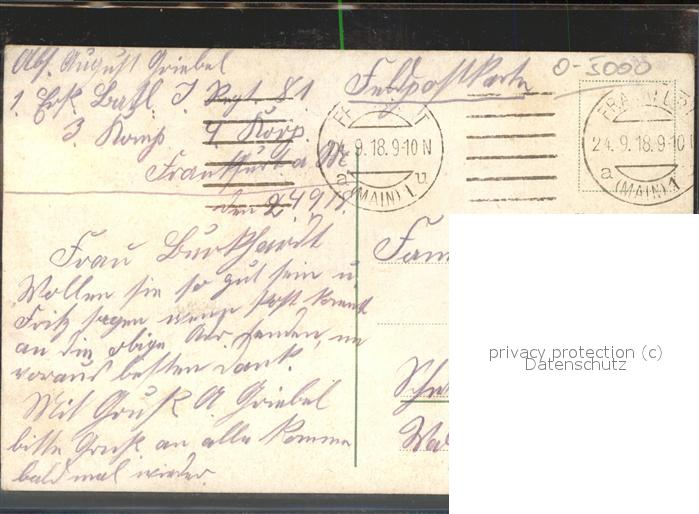 Abs. August Griebel
Feldpostkarte
0-5000
1. Ers. Batl. I. Regt. 81
3. Komp. 4 Korp.
Frankfurt a M
den 24.9.18.
FRANKFURT
24.9.18.9-10 N
a (MAIN) 1 u
FRANKFURT
24.9.18.9-10
a (MAIN) 1
Frau Burkhardt
Wollen sie so gut sein u.
Fritz sagen wenn Post kommt
an die obige Adr. senden, im
voraus besten Dank.
Mit Gruß A. Griebel
bitte Gruß an alle komme
bald mal wieder.
Fam
privacy protection (c)
Datenschutz